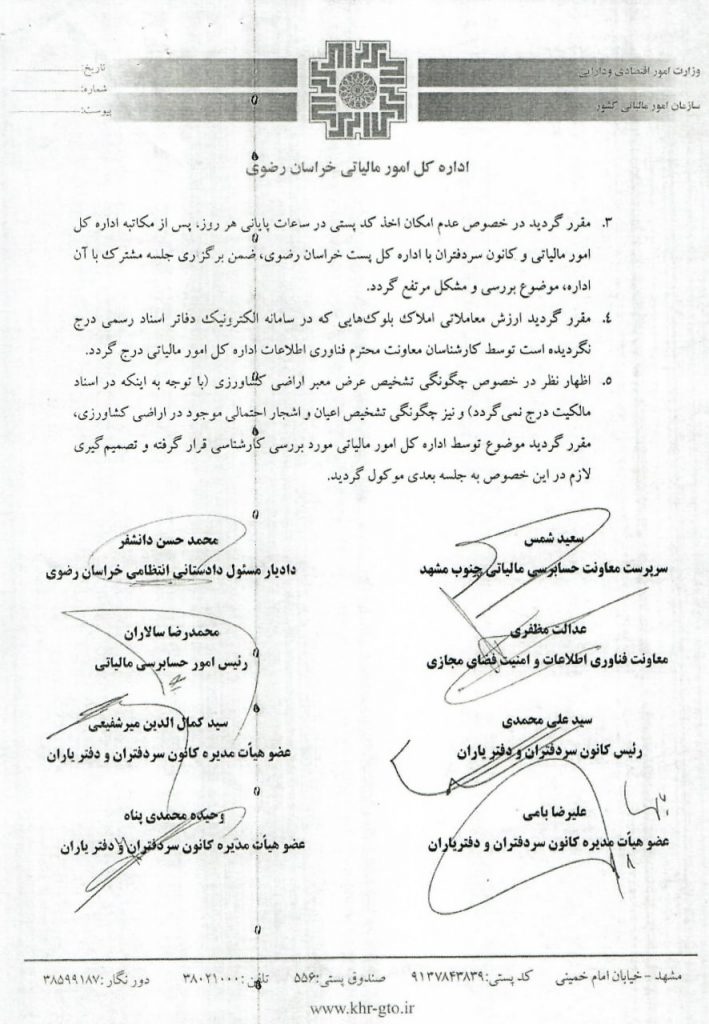 وزارت امور اقتصادی ودارایی
سازمان امور مالیاتی کشور
تاریخ:
شماره:
پیوست:
اداره کل امور مالیاتی خراسان رضوی
۳. مقرر گردید در خصوص عدم امکان اخذ کد پستی در ساعات پایانی هر روز، پس از مکاتبه اداره کل
امور مالیاتی و کانون سردفتران با اداره کل پست خراسان رضوی، ضمن برگزاری جلسه مشترک با آن
اداره، موضوع بررسی و مشکل مرتفع گردد.
٤. مقرر گردید ارزش معاملاتی املاک بلوک‌هایی که در سامانه الکترونیک دفاتر اسناد رسمی درج
نگردیده است توسط کارشناسان معاونت محترم فناوری اطلاعات اداره کل امور مالیاتی درج گردد.
۵. اظهار نظر در خصوص چگونگی تشخیص عرض معبر اراضی کشاورزی (با توجه به اینکه در اسناد
مالکیت درج نمی‌گردد) و نیز چگونگی تشخیص اعیان و اشجار احتمالی موجود در اراضی کشاورزی،
مقرر گردید موضوع توسط اداره کل امور مالیاتی مورد بررسی کارشناسی قرار گرفته و تصمیم‌گیری
لازم در این خصوص به جلسه بعدی موکول گردید.
سعید شمس
سرپرست معاونت حسابرسی مالیاتی جنوب مشهد
محمد حسن دانشفر
دادیار مسئول دادستانی انتظامی خراسان رضوی
عدالت مظفری
معاونت فناوری اطلاعات و امنیت فضای مجازی
محمدرضا سالاران
رئیس امور حسابرسی مالیاتی
سید علی محمدی
رئیس کانون سردفتران و دفتر یاران
سید کمال الدین میرشفیعی
عضو هیأت مدیره کانون سردفتران و دفتر یاران
علیرضا بامی
عضو هیأت مدیره کانون سردفتران و دفتریاران
وحیده محمدی پناه
عضو هیأت مدیره کانون سردفتران و دفتر یاران
مشهد - خیابان امام خمینی کد پستی:۹۱۳۷۸۴۳۸۳۹ صندوق پستی:۵۵۶ تلفن:۳۸۰۲۱۰۰۰ دور نگار:۳۸۵۹۹۱۸۷
www.khr-gto.ir